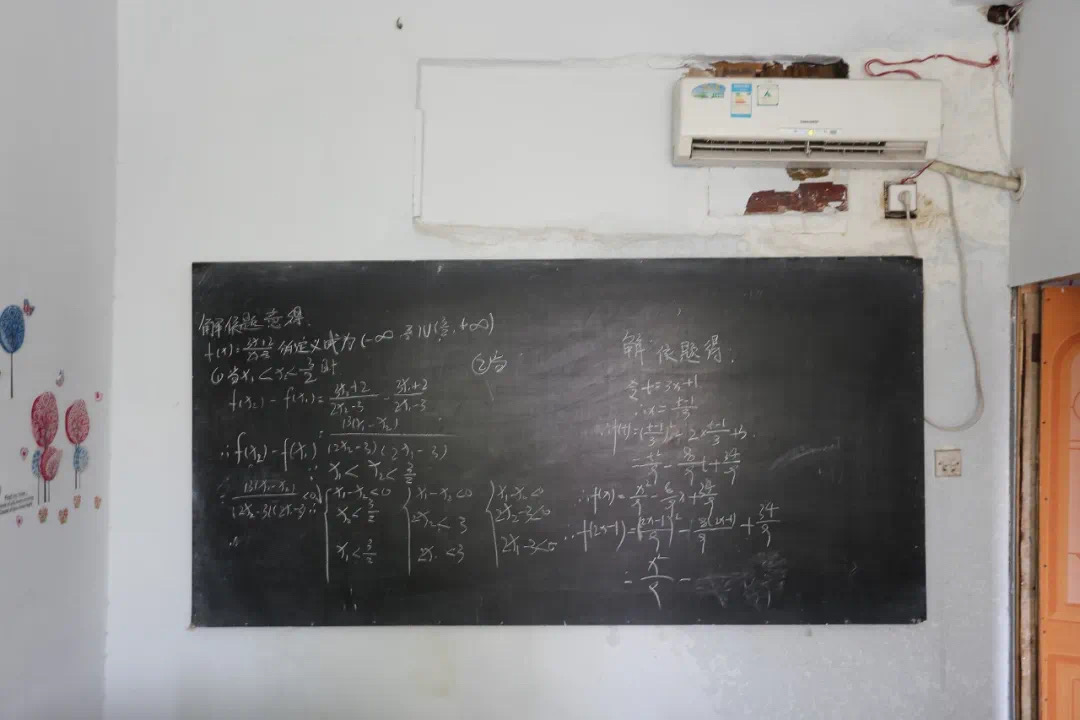 解依题意得.
f(x)=\frac{3x+2}{2x-3}的定义域为(-∞,\frac{3}{2})∪(\frac{3}{2},+∞)
(1)当x₁<x₂<\frac{3}{2}时
f(x₂)-f(x₁)=\frac{3x₂+2}{2x₂-3}-\frac{3x₁+2}{2x₁-3}
=\frac{13(x₁-x₂)}{(2x₂-3)(2x₁-3)}
∴f(x₂)-f(x₁)
∵x₁<x₂<\frac{3}{2}
∴\frac{13(x₁-x₂)}{(2x₂-3)(2x₁-3)}<0
x₁-x₂<0
x₂<\frac{3}{2}
x₁<\frac{3}{2}
∴
x₁-x₂<0
2x₂<3
2x₁<3
x₁-x₂<0
2x₂-3<0
2x₁-3<0
②当
解:依题得.
令t=3x+1
∴x=\frac{t-1}{3}
∴f(t)=(\frac{t-1}{3})²-2×\frac{t-1}{3}+3.
=\frac{t²}{9}-\frac{8}{9}t+\frac{34}{9}
∴f(x)=\frac{x²}{9}-\frac{6}{9}x+\frac{34}{9}
∴f(2x-1)=\frac{(2x-1)²}{9}-\frac{8(2x-1)}{9}+\frac{34}{9}
=\frac{x²}{9}-